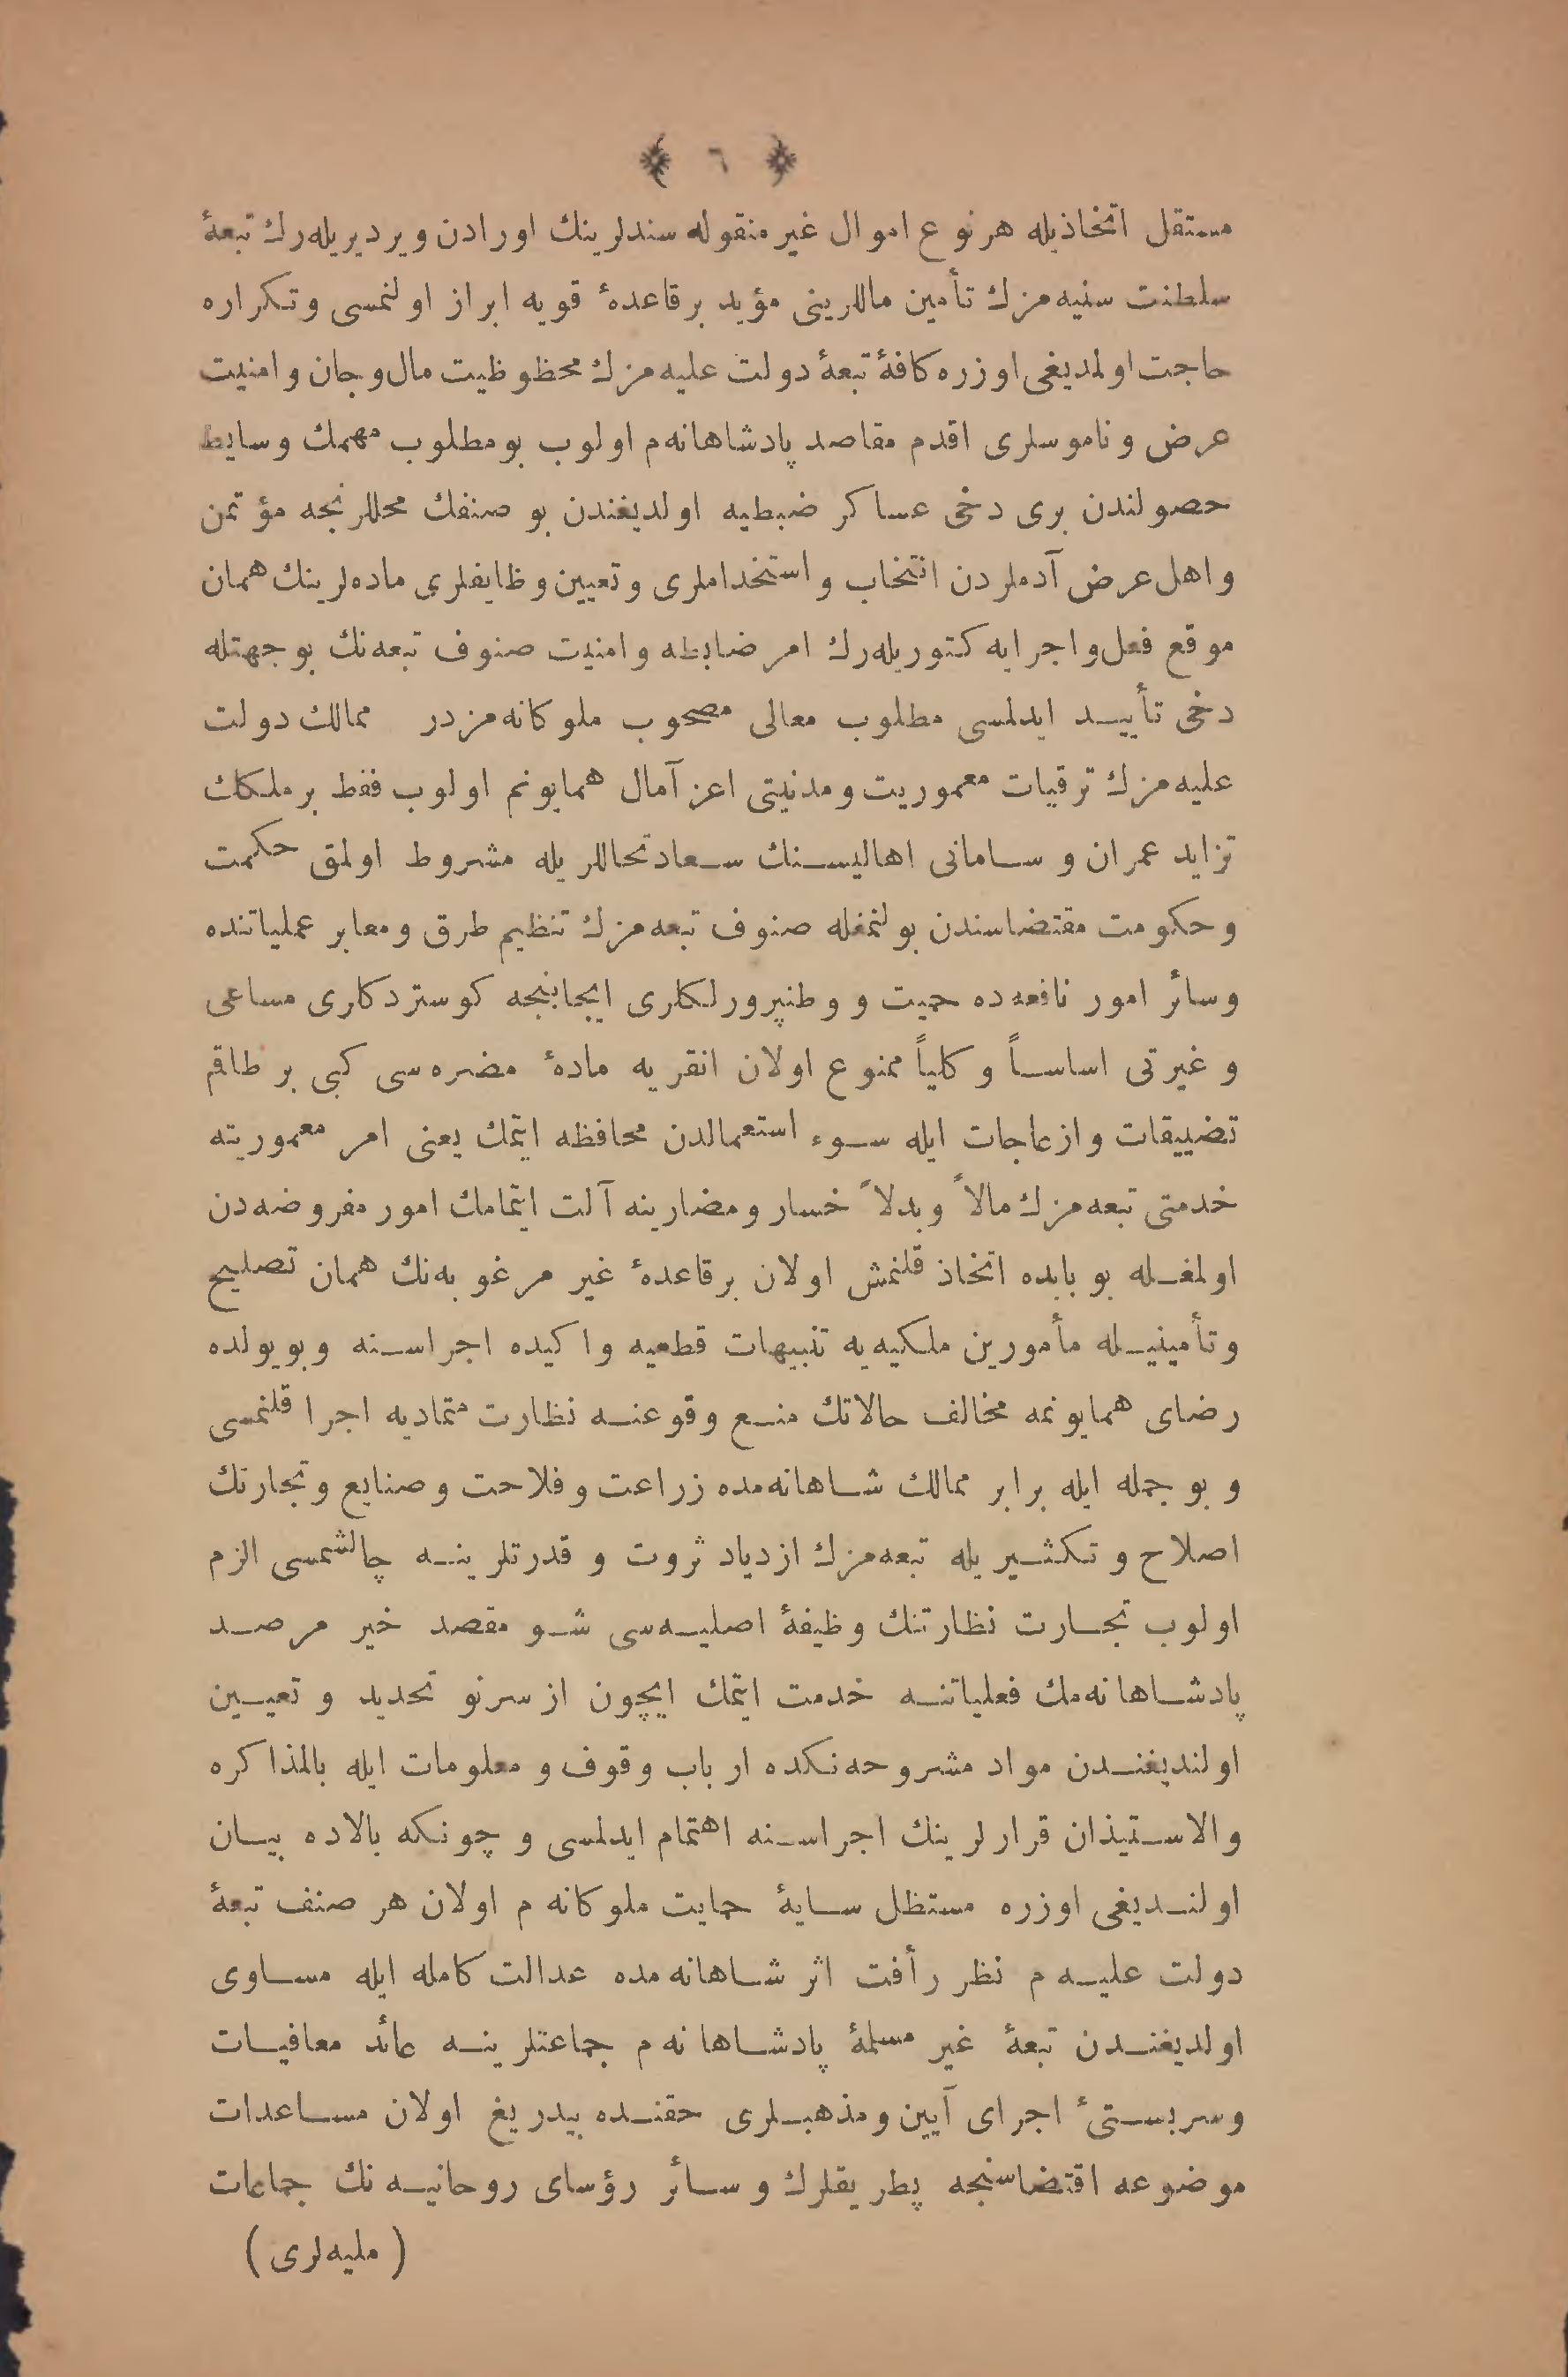 ﴿ ٦ ﴾
مستقل اتخاذيله هرنوع اموال غير منقوله سندلرينك اورادن ويرديريله‌رك تبعهٔ
سلطنت سنيه‌مزك تأمين ماللرينى مؤيد برقاعدهٔ قويه ابراز اولنمسى وتكراره
حاجت اولمديغى اوزره كافهٔ تبعهٔ دولت عليه‌مزك محظوظيت مال‌وجان وامنيت
عرض وناموسلرى اقدم مقاصد پادشاهانه‌م اولوب بومطلوب مهمك وسايط
حصولندن برى دخى عساكر ضبطيه اولديغندن بو صنفك محللرنجه مؤتمن
واهل‌عرض آدملردن انتخاب واستخداملرى وتعيين وظايفلرى ماده‌لرينك همان
موقع فعل‌واجرايه كتوريله‌رك امر ضابطه وامنيت صنوف تبعه‌نك بوجهتله
دخى تأييد ايدلمسى مطلوب معالى مصحوب ملوكانه‌مزدر ممالك دولت
عليه‌مزك ترقيات معموريت ومدنيتى اعز آمال همايونم اولوب فقط برملكك
تزايد عمران و سامانى اهاليسنك سعادتحاللريله مشروط اولمق حكمت
وحكومت مقتضاسندن بولنمغله صنوف تبعه‌مزك تنظيم طرق ومعابر عملياتنده
وسائر امور نافعه‌ده حميت و وطنپرورلكلرى ايجابنجه كوستردكلرى مساعى
و غيرتى اساساً وكلياً ممنوع اولان انقريه مادهٔ مضره‌سى كبى بر طاقم
تضييقات وازعاجات ايله سوء استعمالدن محافظه ايتمك يعنى امر معموريته
خدمتى تبعه‌مزك مالاً وبدلاً خسار ومضارينه آلت ايتمامك امور مفروضه‌دن
اولمغله بو بابده اتخاذ قلنمش اولان برقاعدهٔ غير مرغوبه‌نك همان تصليح
وتأمينيله مأمورين ملكيه‌يه تنبيهات قطعيه واكيده اجراسنه وبويولده
رضاى همايونمه مخالف حالاتك منع وقوعنه نظارت متماديه اجرا قلنمسى
و بو جمله ايله برابر ممالك شاهانه‌مده زراعت وفلاحت وصنايع وتجارتك
اصلاح و تكثيريله تبعه‌مزك ازدياد ثروت و قدرتلرينه چالشمسى الزم
اولوب تجارت نظارتنك وظيفهٔ اصليه‌سى شو مقصد خير مرصد
پادشاهانه‌مك فعلياتنه خدمت ايتمك ايچون از سرنو تحديد و تعيين
اولنديغندن مواد مشروحه‌نكده ارباب وقوف و معلومات ايله بالمذاكره
والاستيذان قرارلرينك اجراسنه اهتمام ايدلمسى و چونكه بالاده بيان
اولنديغى اوزره مستظل سايهٔ حمايت ملوكانه م اولان هر صنف تبعهٔ
دولت عليه م نظر رأفت اثر شاهانه‌مده عدالت كامله ايله مساوى
اولديغندن تبعهٔ غير مسلمهٔ پادشاهانه م جماعتلرينه عائد معافيات
وسربستىٔ اجراى آيين ومذهبلرى حقنده بيدريغ اولان مساعدات
موضوعه اقتضاسنجه پطريقلرك وسائر رؤساى روحانيه نك جماعات
( مليه‌لرى )